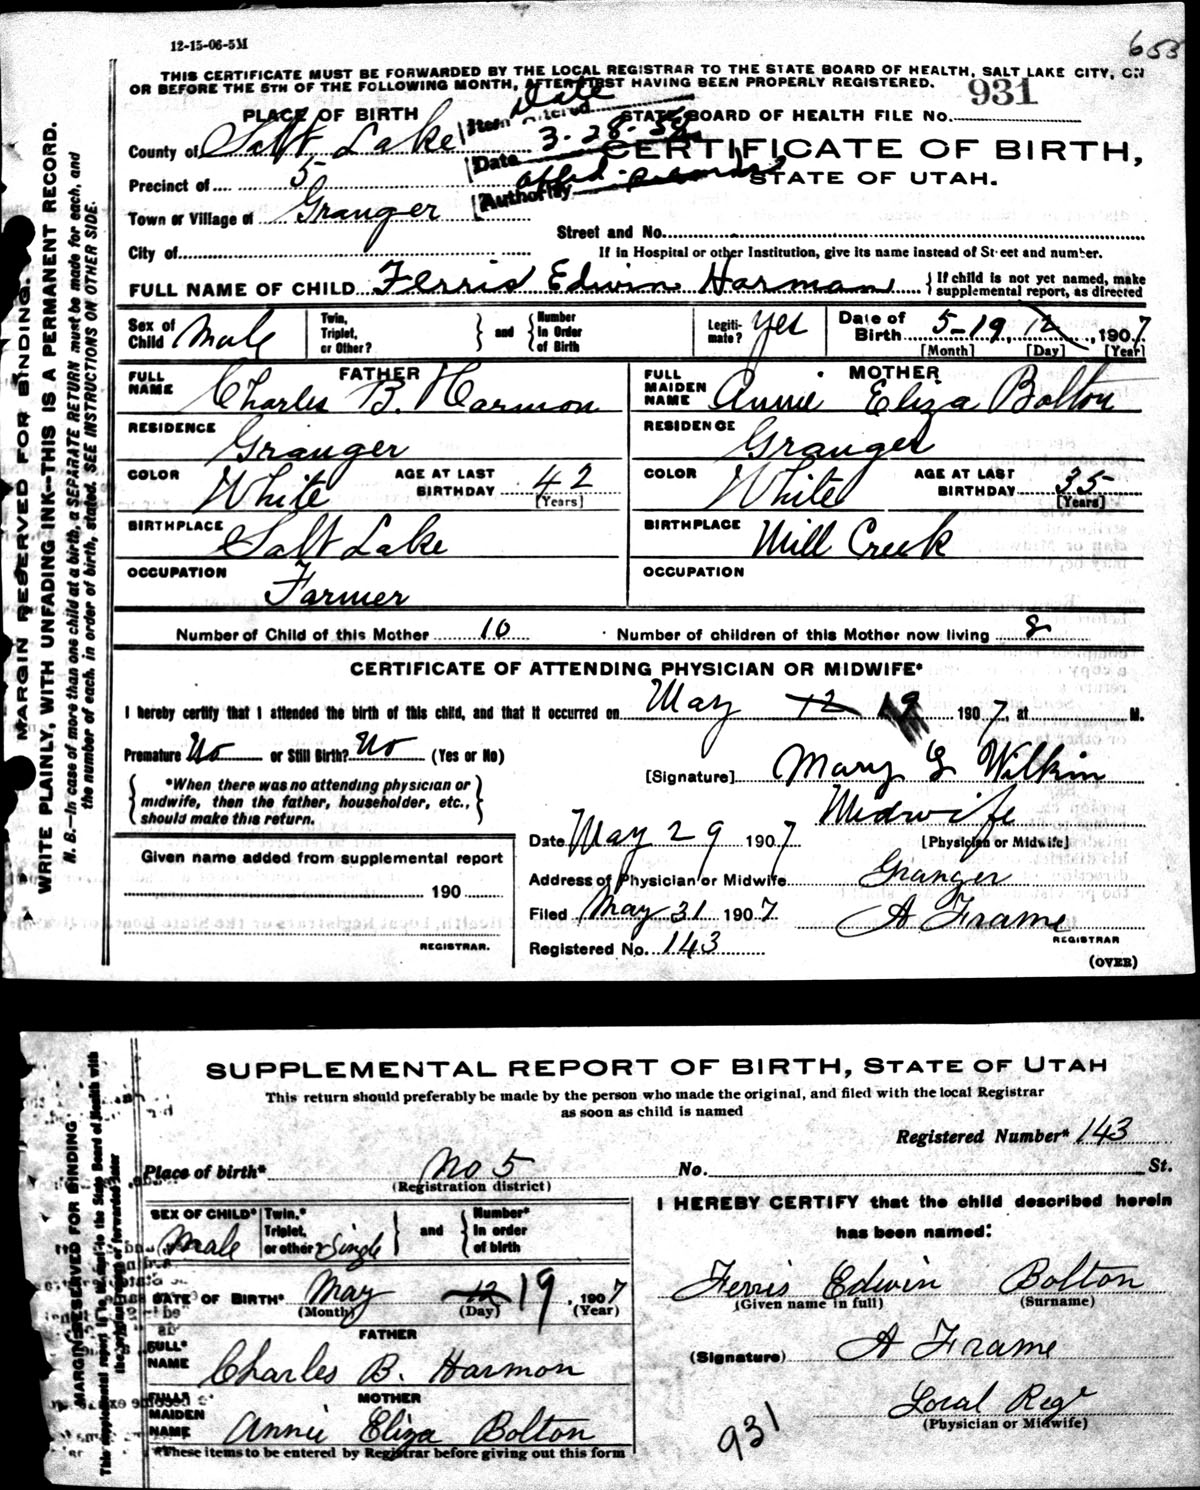 12-15-06-5M
653
THIS CERTIFICATE MUST BE FORWARDED BY THE LOCAL REGISTRAR TO THE STATE BOARD OF HEALTH, SALT LAKE CITY, ON
OR BEFORE THE 5TH OF THE FOLLOWING MONTH, AFTER FIRST HAVING BEEN PROPERLY REGISTERED.
931
PLACE OF BIRTH
STATE BOARD OF HEALTH FILE NO.
Item Date
Date 3-28-58
Authority affd. records
County of Salt Lake
CERTIFICATE OF BIRTH,
STATE OF UTAH.
Precinct of 5
Town or Village of Granger
Street and No.
City of
If in Hospital or other Institution, give its name instead of Street and number.
FULL NAME OF CHILD Ferris Edwin Harman
{If child is not yet named, make
supplemental report, as directed
Sex of Child Male
Twin, Triplet, or Other?
and
Number In Order of Birth
Legiti-mate? Yes
Date of Birth 5-19 12, 1907
[Month] [Day] [Year]
FATHER
FULL NAME Charles B. Harmon
MOTHER
FULL MAIDEN NAME Annie Eliza Bolton
RESIDENCE Granger
RESIDENCE Granger
COLOR White AGE AT LAST BIRTHDAY 42 [Years]
COLOR White AGE AT LAST BIRTHDAY 35 [Years]
BIRTHPLACE Salt Lake
BIRTHPLACE Mill Creek
OCCUPATION Farmer
OCCUPATION
Number of Child of this Mother 10
Number of children of this Mother now living 8
CERTIFICATE OF ATTENDING PHYSICIAN OR MIDWIFE*
I hereby certify that I attended the birth of this child, and that it occurred on May 12 19 1907, at M.
Premature No or Still Birth? No (Yes or No)
[Signature] Mary G Wilkin
{*When there was no attending physician or
midwife, then the father, householder, etc.,
should make this return.}
Midwife
[Physician or Midwife]
Date May 29 1907
Given name added from supplemental report
190
REGISTRAR.
Address of Physician or Midwife Granger
Filed May 31 1907
A Frame
REGISTRAR
Registered No. 143
(OVER)
MARGIN RESERVED FOR BINDING.
WRITE PLAINLY, WITH UNFADING INK—THIS IS A PERMANENT RECORD.
N. B.—In case of more than one child at a birth, a SEPARATE RETURN must be made for each, and
the number of each, in order of birth, stated. SEE INSTRUCTIONS ON OTHER SIDE.
SUPPLEMENTAL REPORT OF BIRTH, STATE OF UTAH
This return should preferably be made by the person who made the original, and filed with the local Registrar
as soon as child is named
Registered Number* 143
Place of birth* No 5
No. St.
(Registration district)
SEX OF CHILD* Male
Twin,* Triplet, or other? Single
and
Number* In order of birth
I HEREBY CERTIFY that the child described herein
has been named:
DATE OF BIRTH* May 12 19, 1907
(Month) (Day) (Year)
Ferris Edwin Bolton
(Given name in full) (Surname)
FATHER
FULL* NAME Charles B. Harmon
(Signature) A Frame
MOTHER
FULL* MAIDEN NAME Annie Eliza Bolton
Local Regr
(Physician or Midwife)
931
*These items to be entered by Registrar before giving out this form
MARGIN RESERVED FOR BINDING